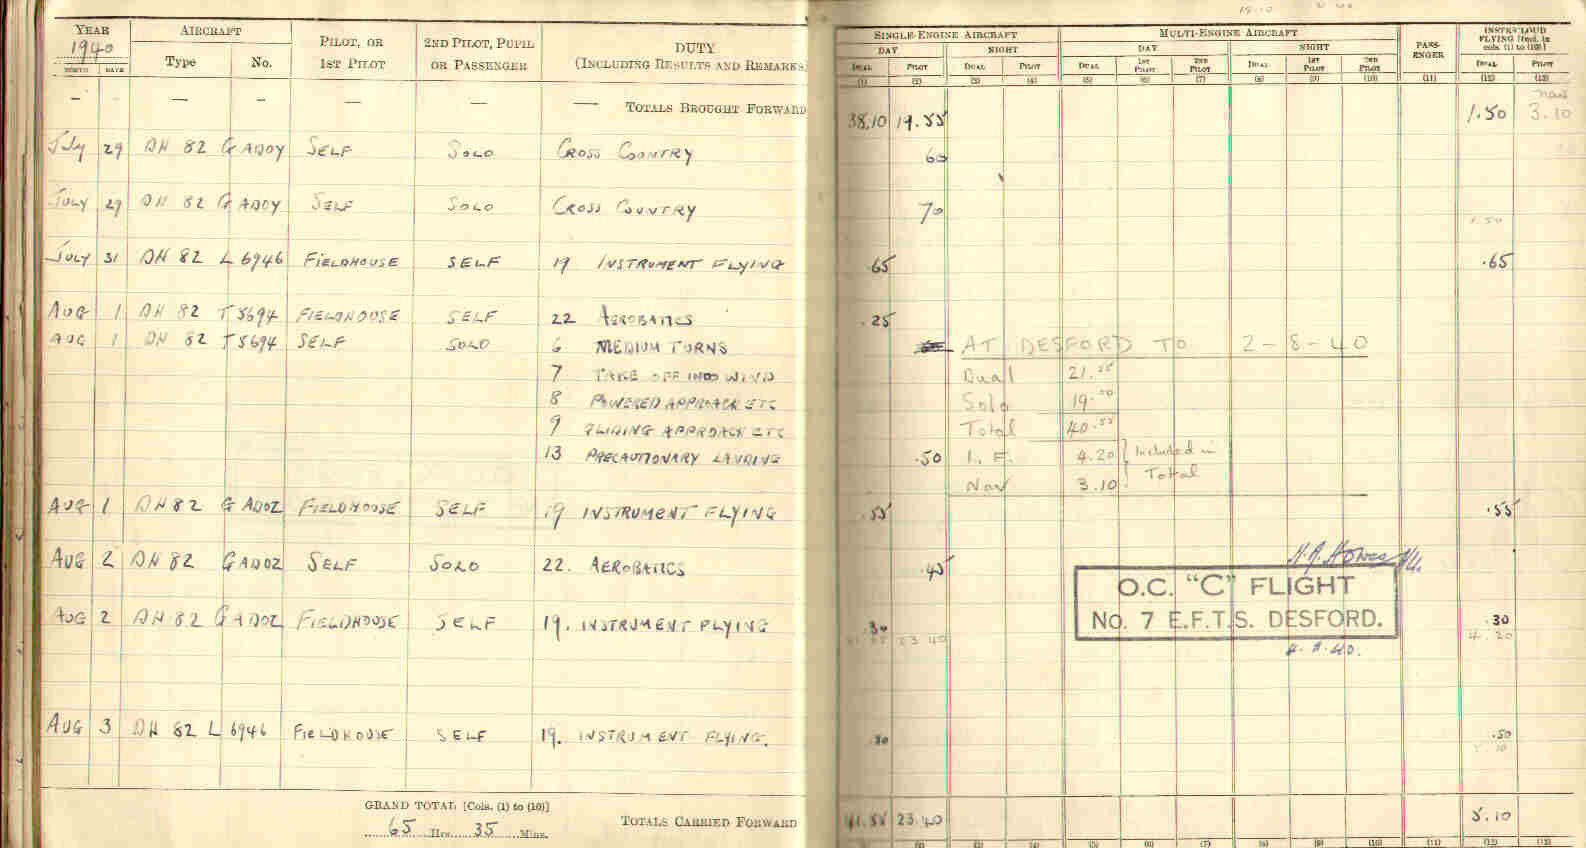 19.10
YEAR AIRCRAFT PILOT, OR 1ST PILOT 2ND PILOT, PUPIL OR PASSENGER DUTY (INCLUDING RESULTS AND REMARKS)
1940
MONTH DATE Type No.
SINGLE-ENGINE AIRCRAFT MULTI-ENGINE AIRCRAFT PASS-ENGER INSTR/CLOUD FLYING [Incl. in cols. (1) to (10)]
DAY NIGHT DAY NIGHT
DUAL PILOT DUAL PILOT DUAL 1ST PILOT 2ND PILOT DUAL 1ST PILOT 2ND PILOT DUAL PILOT
(1) (2) (3) (4) (5) (6) (7) (8) (9) (10) (11) (12) (13)
— — — — — — — TOTALS BROUGHT FORWARD 38.10 19.55 1.50 nav 3.10
July 29 DH 82 G ADOY SELF SOLO CROSS COUNTRY 60
JULY 29 DH 82 G ADOY SELF SOLO CROSS COUNTRY 70 1.50
JULY 31 DH 82 L 6946 FIELDHOUSE SELF 19 INSTRUMENT FLYING .65 .65
AUG 1 DH 82 T 5694 FIELDHOUSE SELF 22 AEROBATICS .25
AUG 1 DH 82 T 5694 SELF SOLO 6 MEDIUM TURNS AT DESFORD TO 2-8-40
7 TAKE OFF INTO WIND Dual 21.55
8 POWERED APPROACH ETC Solo 19.00
9 GLIDING APPROACH ETC Total 40.55
13 PRECAUTIONARY LANDING .50 I. F. 4.20 Included in
Nav 3.10 Total
AUG 1 DH 82 G ADOZ FIELDHOUSE SELF 19 INSTRUMENT FLYING .55 .55
AUG 2 DH 82 G ADOZ SELF SOLO 22. AEROBATICS .45
O.C. "C" FLIGHT
No. 7 E.F.T.S. DESFORD.
AUG 2 DH 82 G ADOZ FIELDHOUSE SELF 19. INSTRUMENT FLYING .30 .30
23 40 4.20
AUG 3 DH 82 L 6946 FIELDHOUSE SELF 19. INSTRUMENT FLYING. .50
5.10
GRAND TOTAL [Cols. (1) to (10)]
65 Hrs. 35 Mins.
TOTALS CARRIED FORWARD 41.55 23.40 5.10
(2) (3) (4) (5) (6) (7) (8) (9) (10) (11) (12) (13)